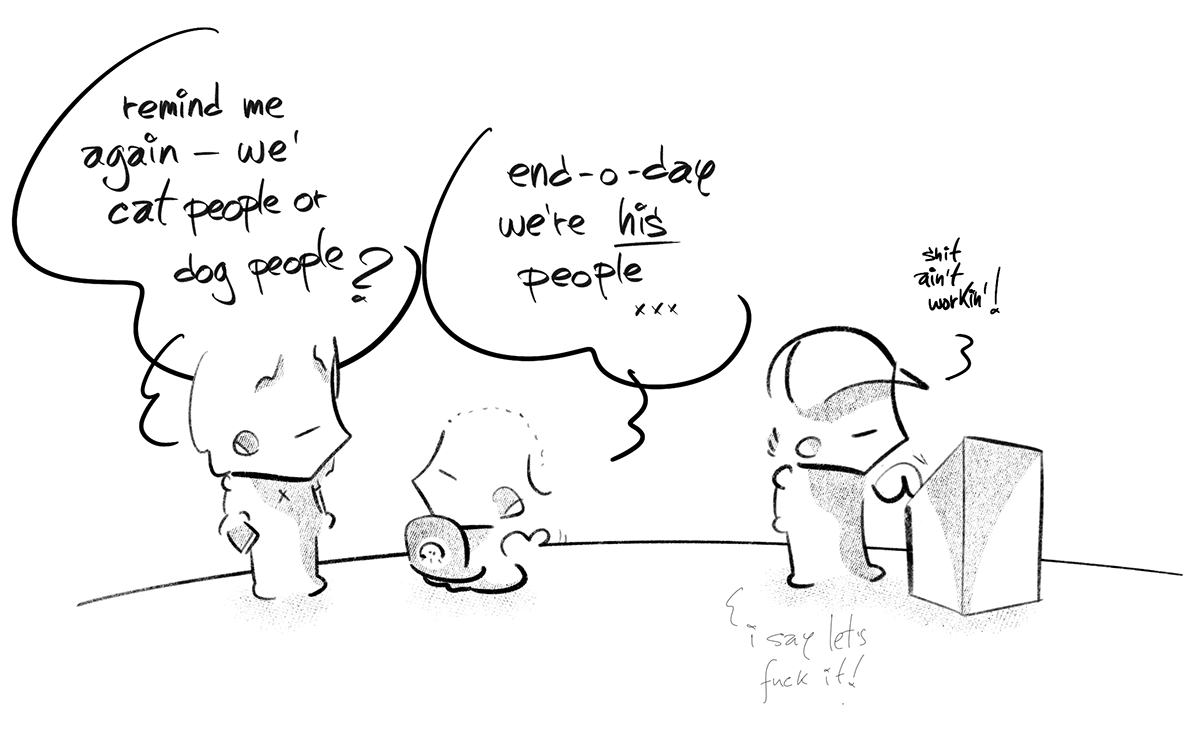 remind me
again – we'
cat people or
dog people?
end-o-day
we're his
people
xxx
shit
ain't
workin'!
i say let's
fuck it!